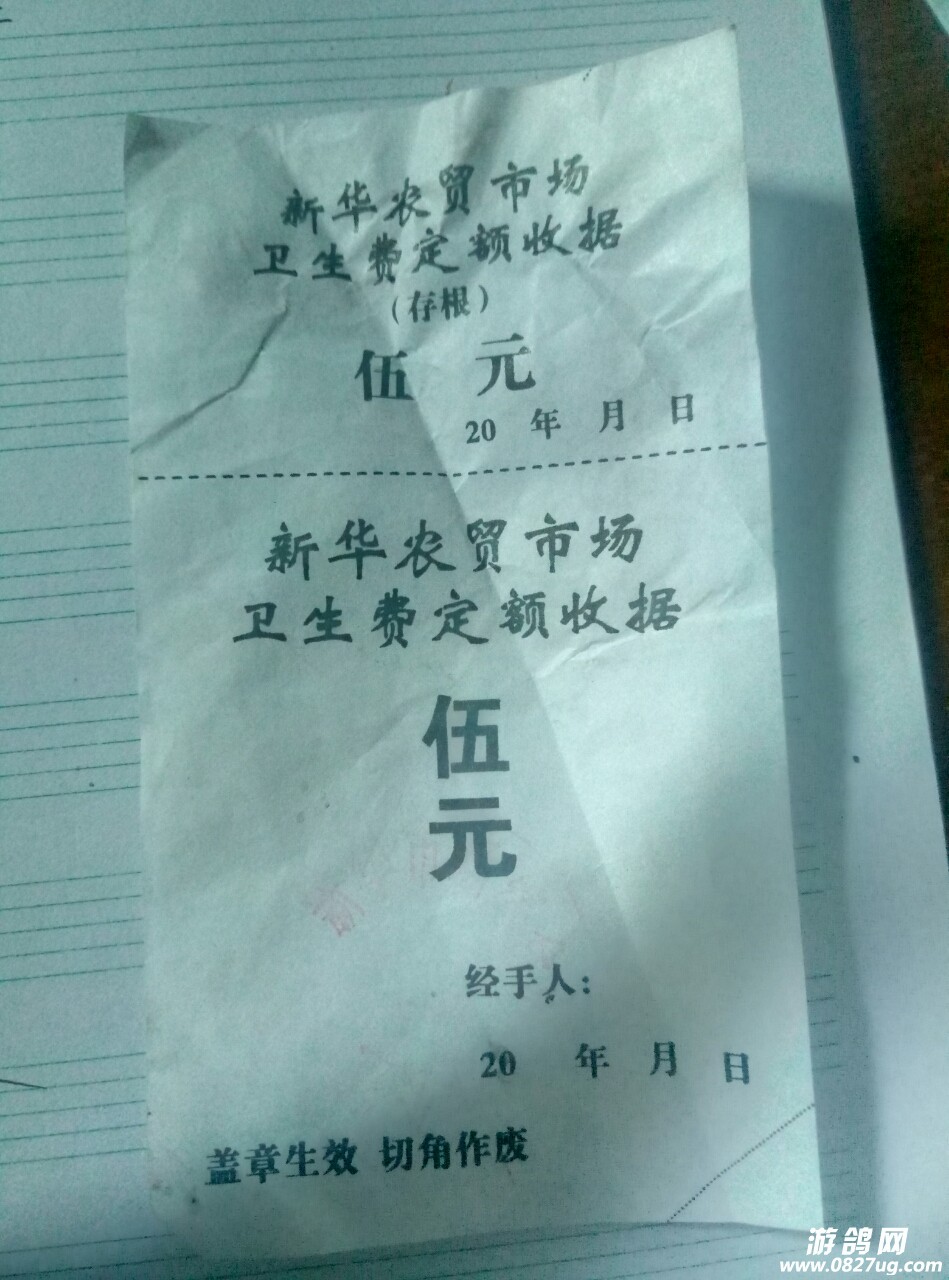 新华农贸市场
卫生费定额收据
（存根）
伍 元
20 年 月 日
新华农贸市场
卫生费定额收据
伍
元
经手人：
20 年 月 日
盖章生效 切角作废
游鸽网
www.0827ug.com